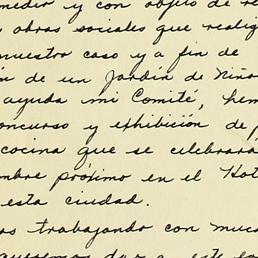 medir y con objeto de re
obras sociales que realiz
nuestro caso y a fin de
de un Jardín de Niño
ayuda mi Comité, hem
concurso y exhibición de
cocina que se celebrará
mbre próximo en el Hot
esta ciudad.
os trabajando con much
queremos dar a este